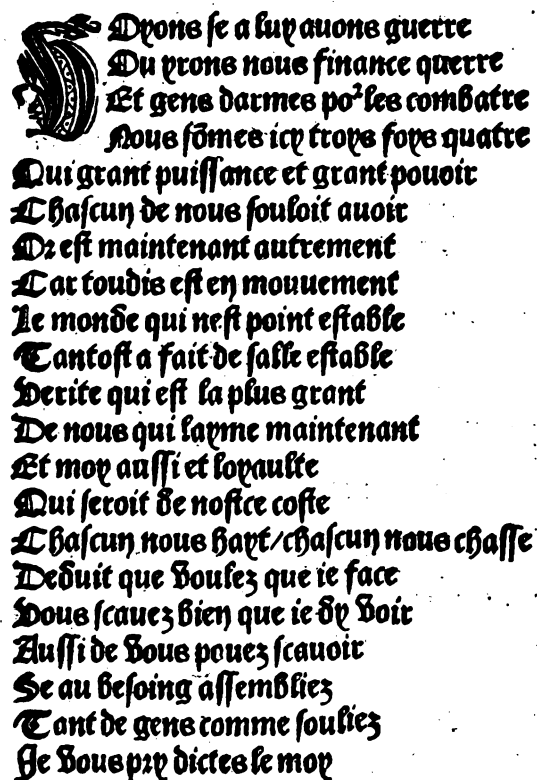 Voyons se a luy auons guerre
Ou yrons nous finance querre
Et gens darmes po² les combatre
Nous sõmes icy troys foys quatre
Qui grant puissance et grant pouoir
Chascun de nous souloit auoir
Or est maintenant autrement
Car toudis est en mouuement
Le monde qui nest point estable
Tantost a fait de salle estable
Verite qui est la plus grant
De nous qui layme maintenant
Et moy aussi et loyaulte
Qui seroit de nostre coste
Chascun nous hayt/chascun nous chasse
Deduit que voulez que ie face
Vous scauez bien que ie dy voir
Aussi de vous pouez scauoir
Se au besoing assembliez
Tant de gens comme souliez
Je vous pry dictes le moy